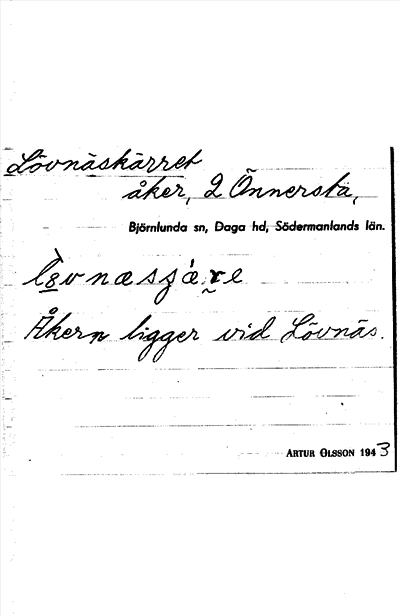 Lövnäskärret
åker, 2 Önnersta,
Björnlunda sn, Daga hd, Södermanlands län.
Åkern ligger vid Lövnäs.
ARTUR OLSSON 1943